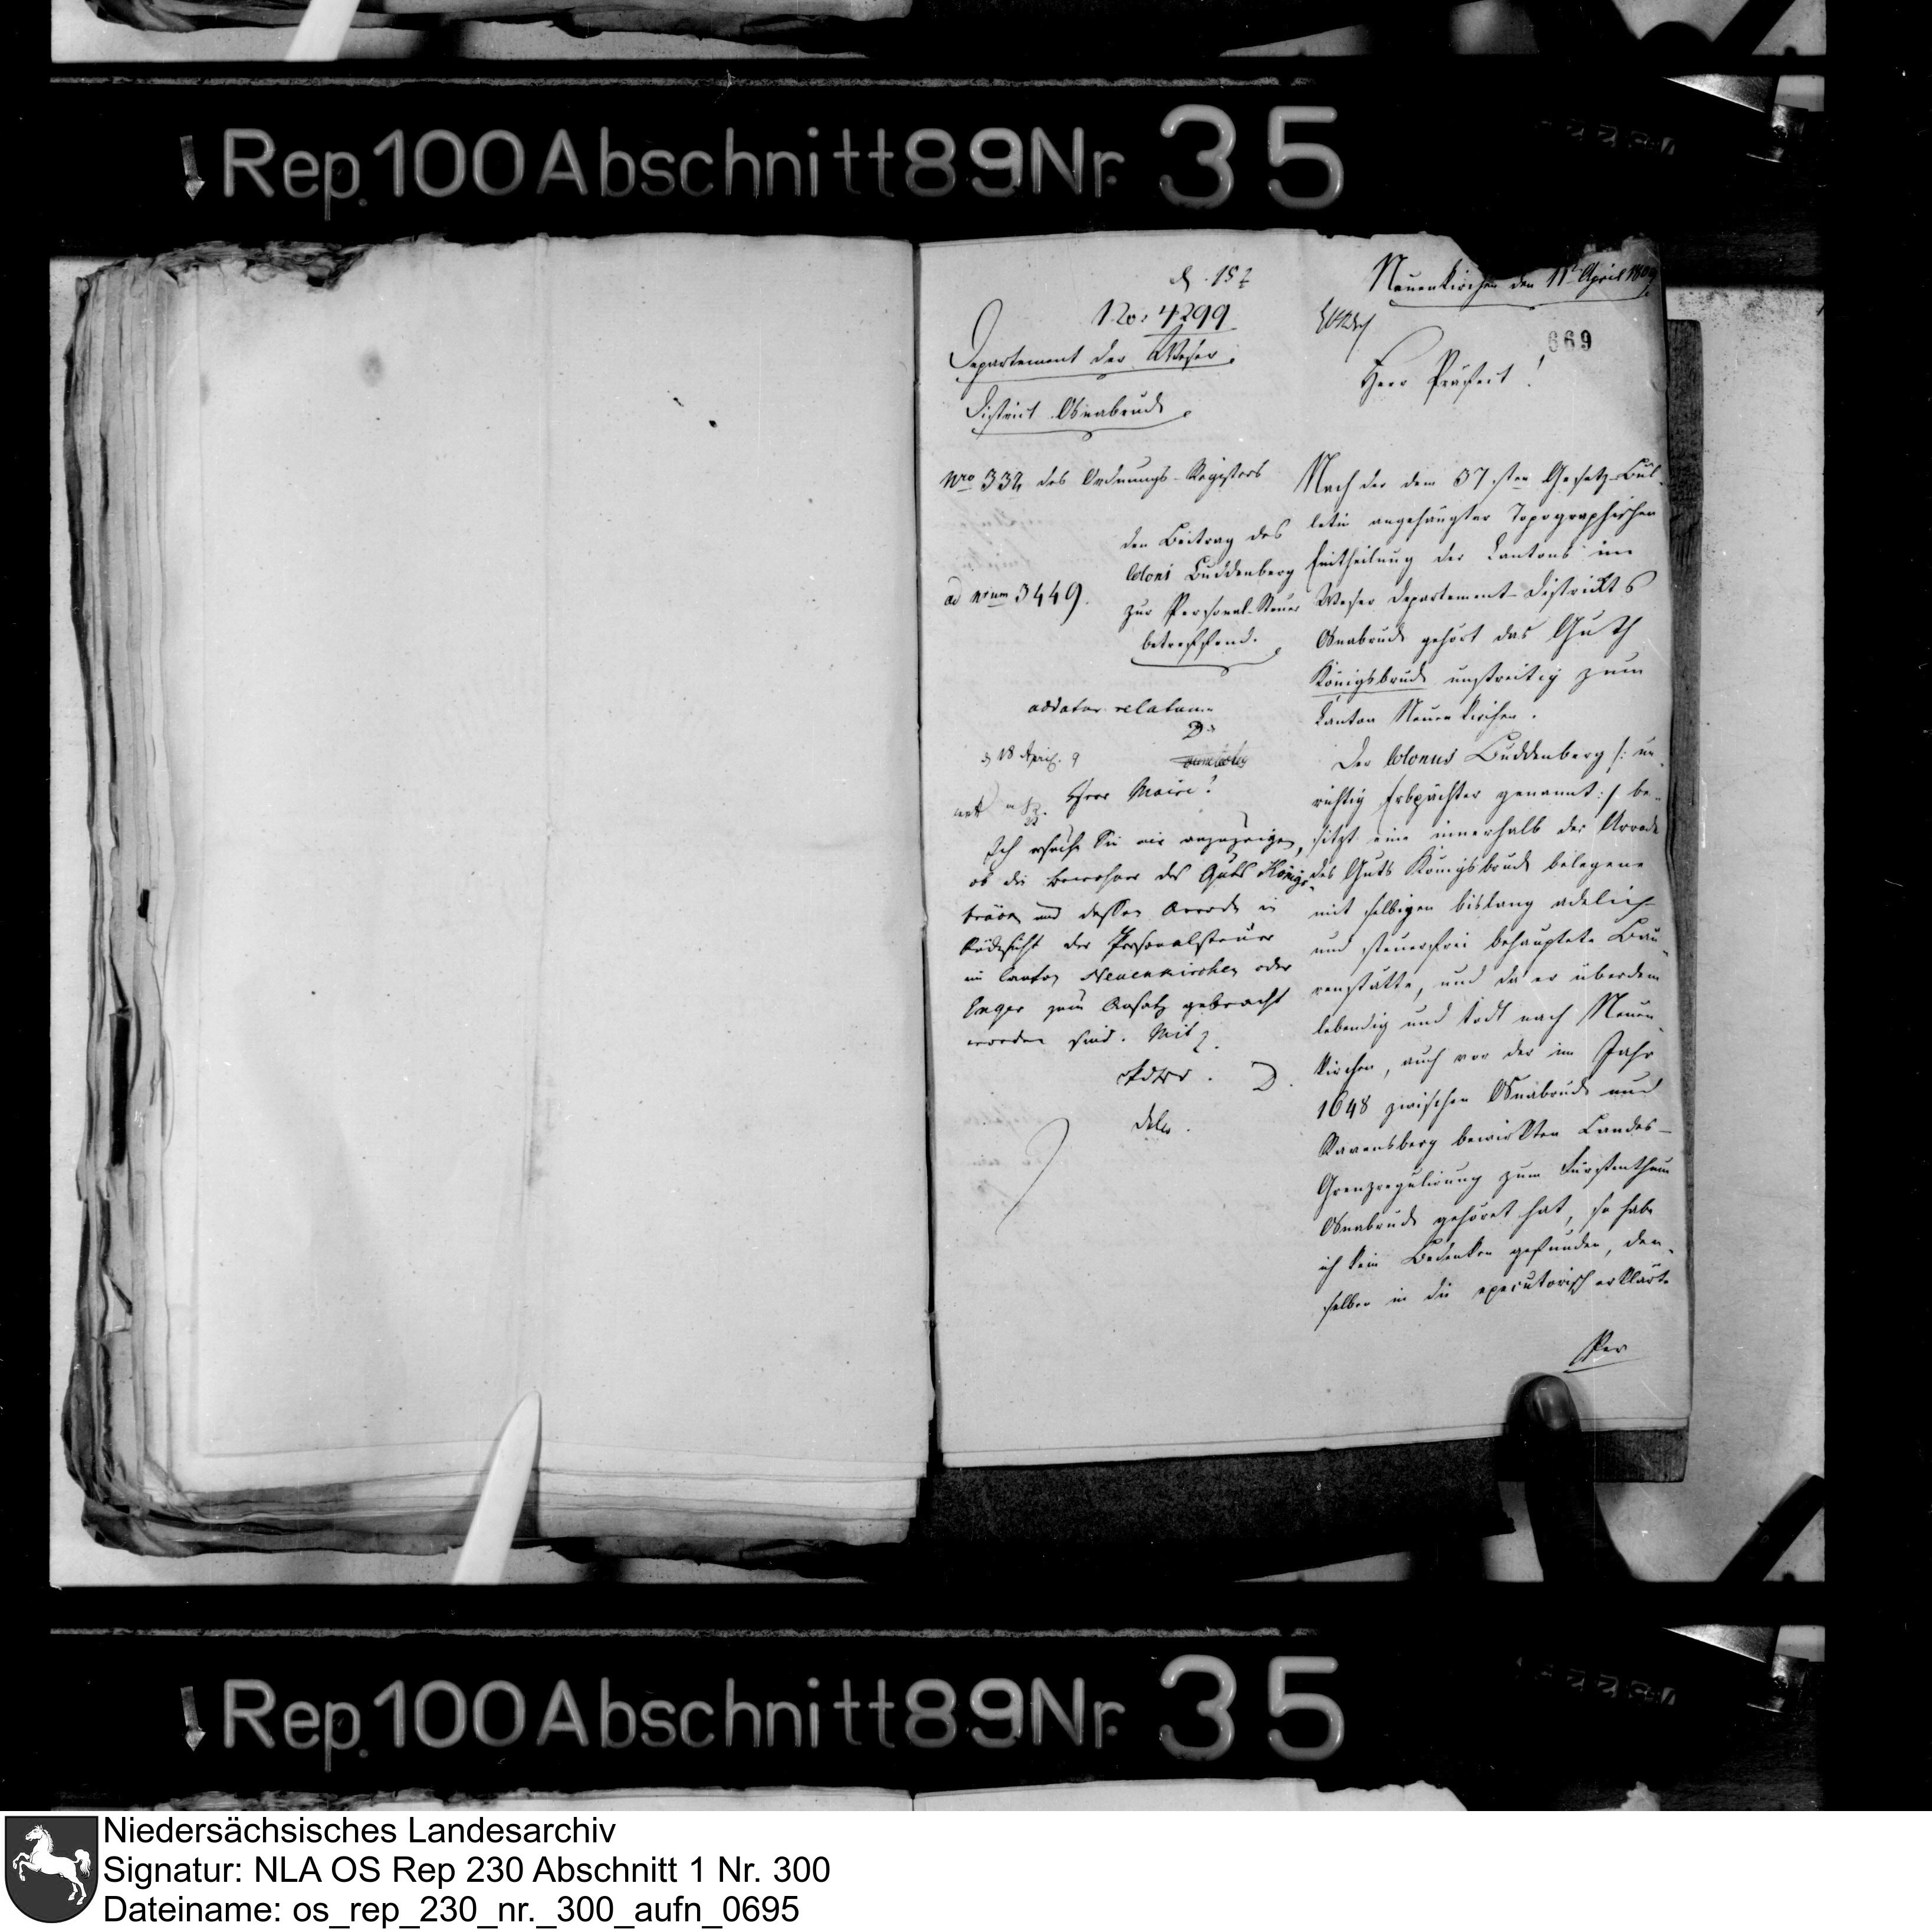 Rep. 100 Abschnitt 89 Nr. 35
Neuenkirchen den 11t April 1809
No: 4299
669
Departement der Weser.
Herr Präfect!
District Osnabrück.
Nro 332 des Ordnungs-Registers
ad Nrum 3449.
den Beitrag des
Coloni Buddenberg
zur Personal-Steuer
betreffend.
addatur relatum
D.
d 18 April. 9
Herr Maire!
Ich ersuche Sie mir anzuzeigen,
ob die Bewohner des Guts Königs-
brück und dessen Arrode in
Rücksicht der Personalsteuer
im Canton Neuenkirchen oder
Enger zum Ansatz gebracht
worden sind. Mit
D.
Nach der dem 37.sten Gesetz-Bul-
letin angehängter Topographischen
Eintheilung der Cantons im
Weser Departement-Districkts
Osnabrück gehört das Guth
Königsbrück unstreitig zum
Canton Neuenkirchen.
Der Colonus Buddenberg /: un-
richtig Erbpächter genannt :/ be-
sitzt eine innerhalb der Arrode
des Guts Königsbrück belegene
mit selbigen bislang adelich
und steuerfrei behauptete Bau-
renstätte, und da er überdem
lebendig und todt nach Neuen-
kirchen, auch vor der im Jahr
1648 zwischen Osnabrück und
Ravensberg bewirkten Landes-
Grenzregulirung zum Fürstenthum
Osnabrück gehöret hat, so habe
ich kein Bedenken gefunden, den-
selben in die executorisch erklärte
Per
Rep. 100 Abschnitt 89 Nr. 35
Niedersächsisches Landesarchiv
Signatur: NLA OS Rep 230 Abschnitt 1 Nr. 300
Dateiname: os_rep_230_nr._300_aufn_0695